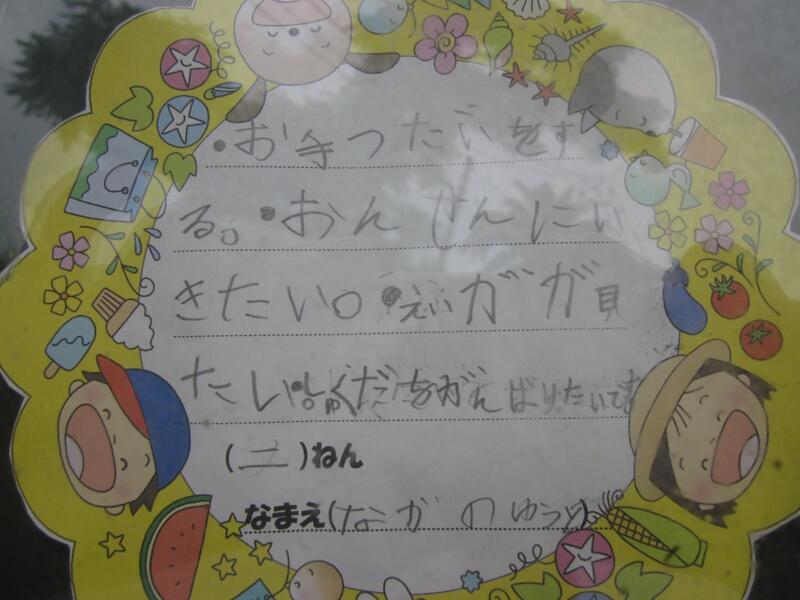 ・お手つだいをす
る。・おんせんにい
きたい。・えいがが見
たい。・しゅくだをがんばりたいです
(二)ねん
なまえ(ながのゆうり)